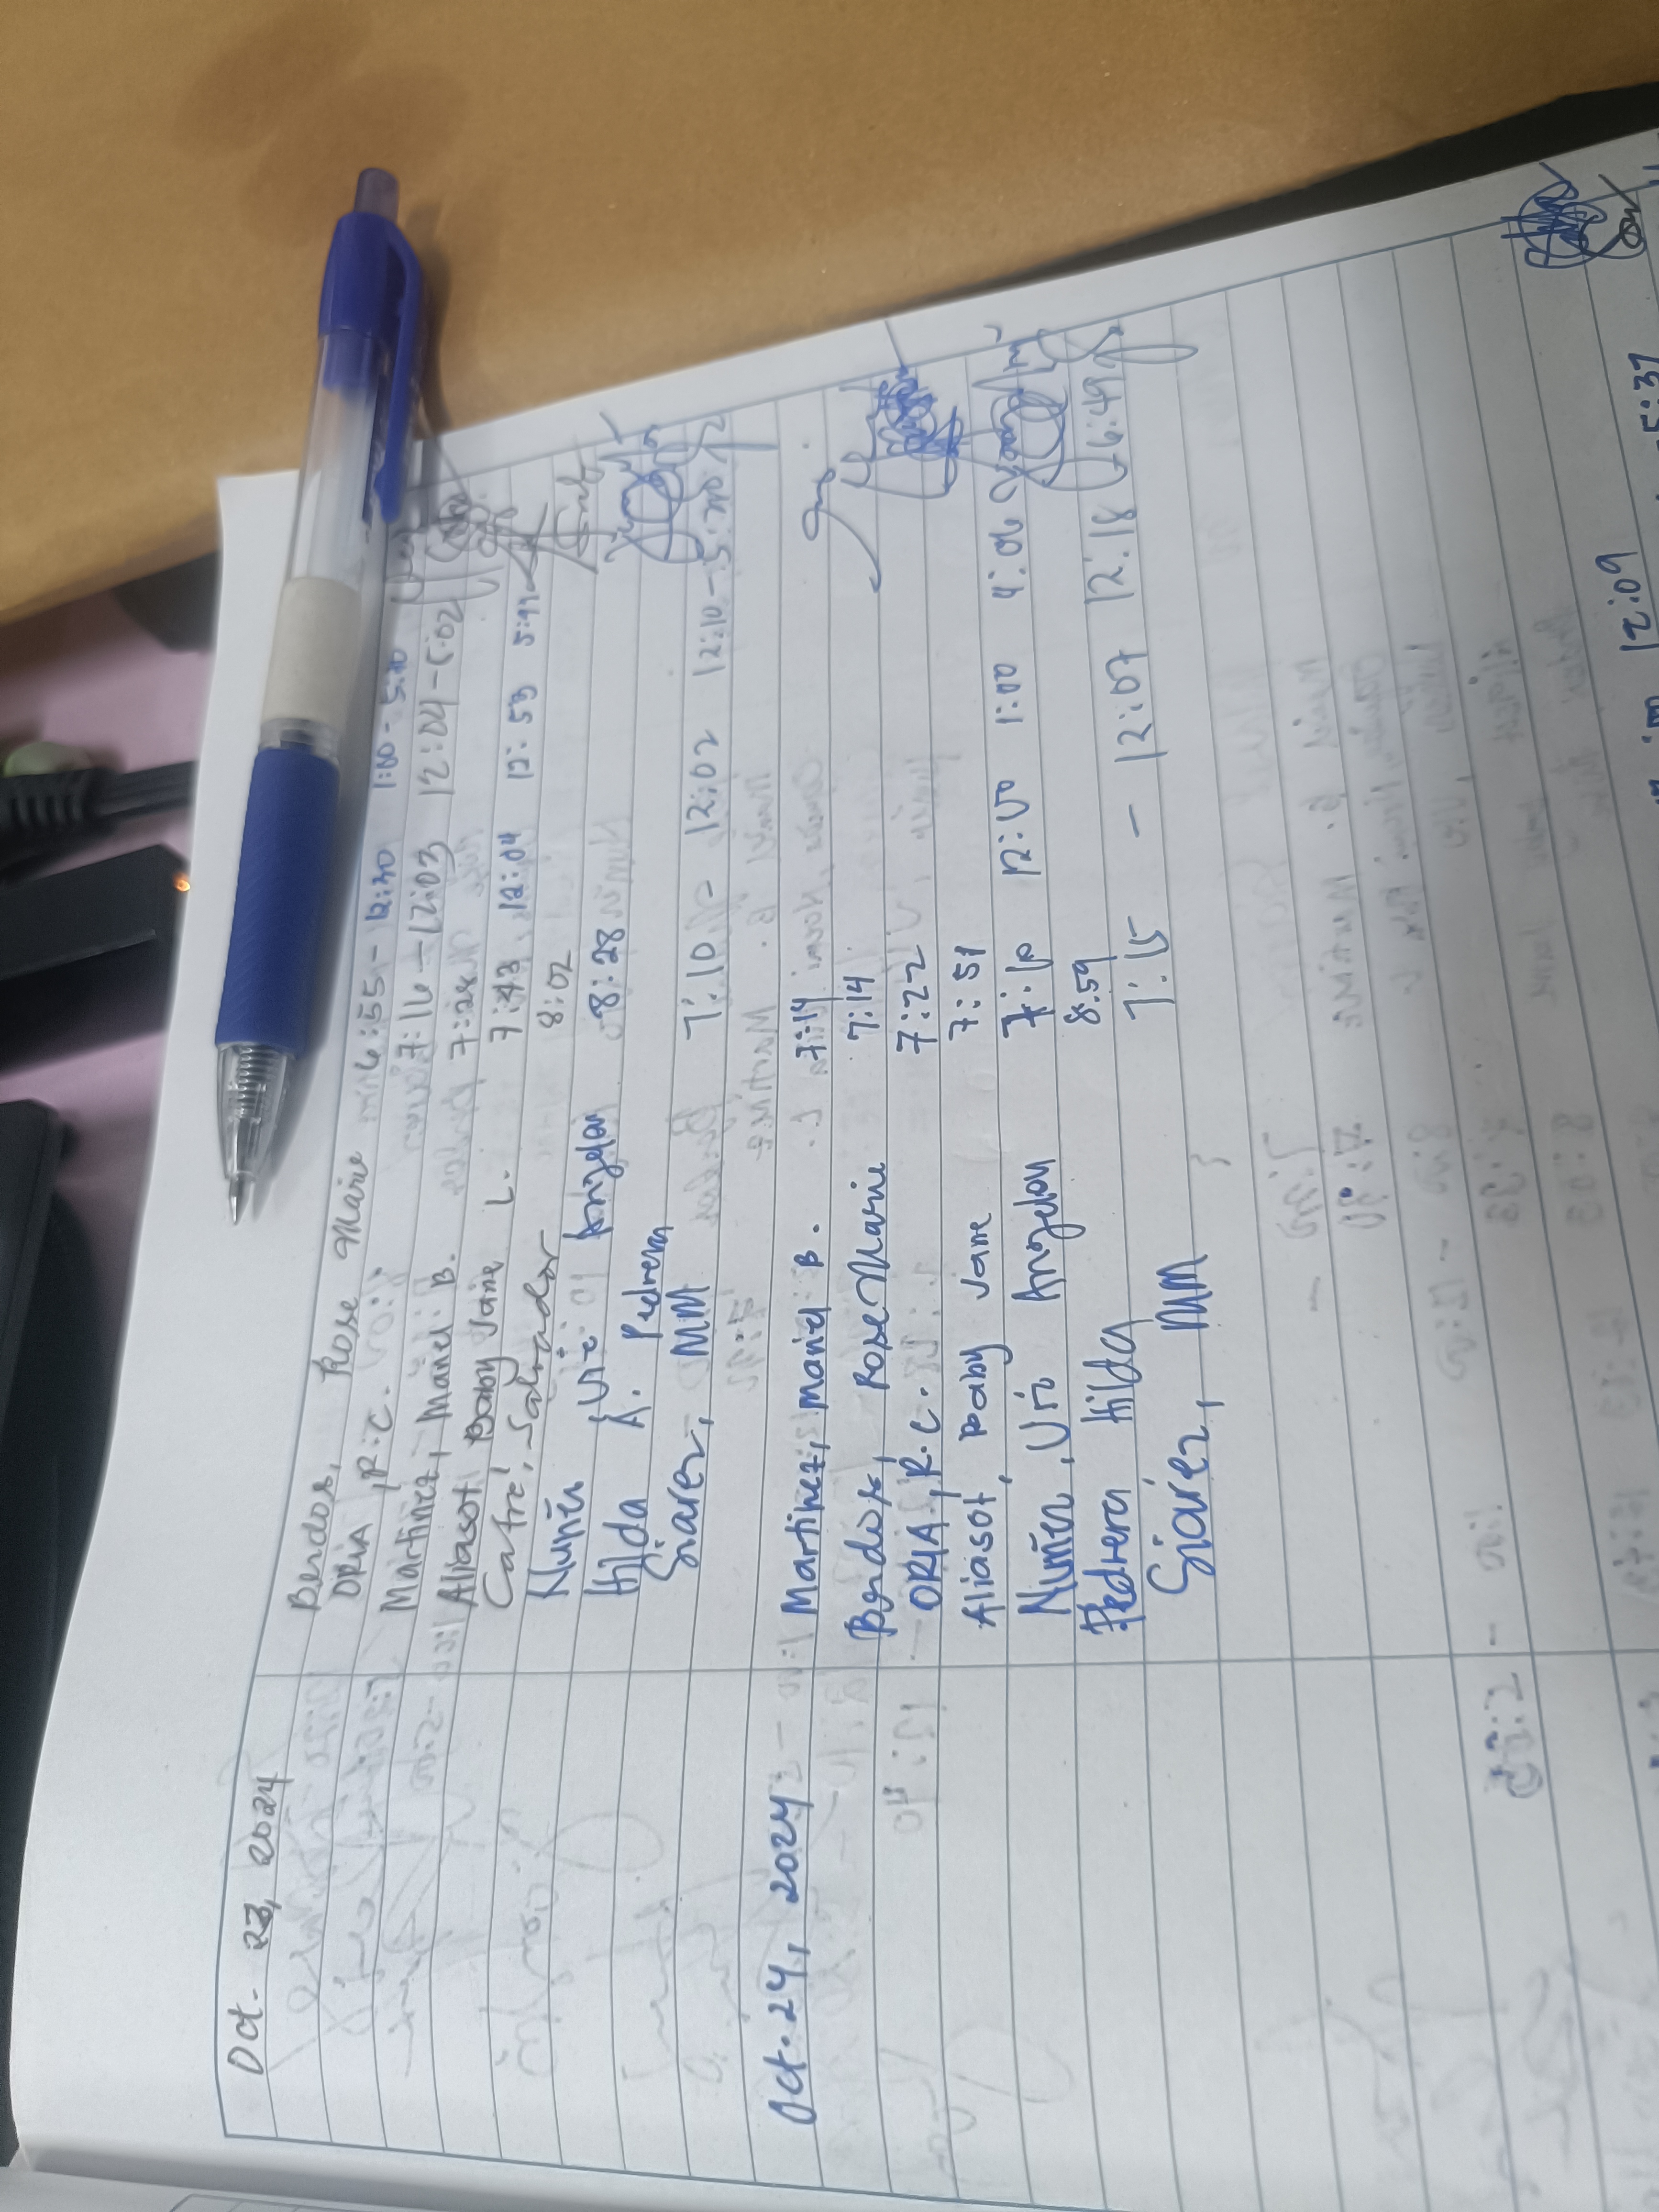 Oct. 23, 2024
Berdos, Rose Marie 6:55 - 12:30 1:00 - 5:30
ORIA, R.C. 7:16 - 12:03 12:04 - 5:02
Martinez, Manel B. 7:28
Aliasot Baby Jane L. 7:43 12:04 12:53 5:41
Catre, Salvador 8:02
Nuñez, Vic Angelon 8:28
Hilda A. Pedrera
Siarez, MM 7:10 - 12:02 12:10 - 5:30
Oct. 24, 2024 Martinez, Manel B. 7:14
Berdos, Rose Marie 7:14
ORIA, R.C. 7:22
Aliasot, Baby Jane 7:51
Nuñez, Vic Angelon 7:10 12:00 1:00 4:06
Pedrera Hilda 8:59
Siarez, MM 7:15 - 12:07 12:18 6:49
12:09 5:37